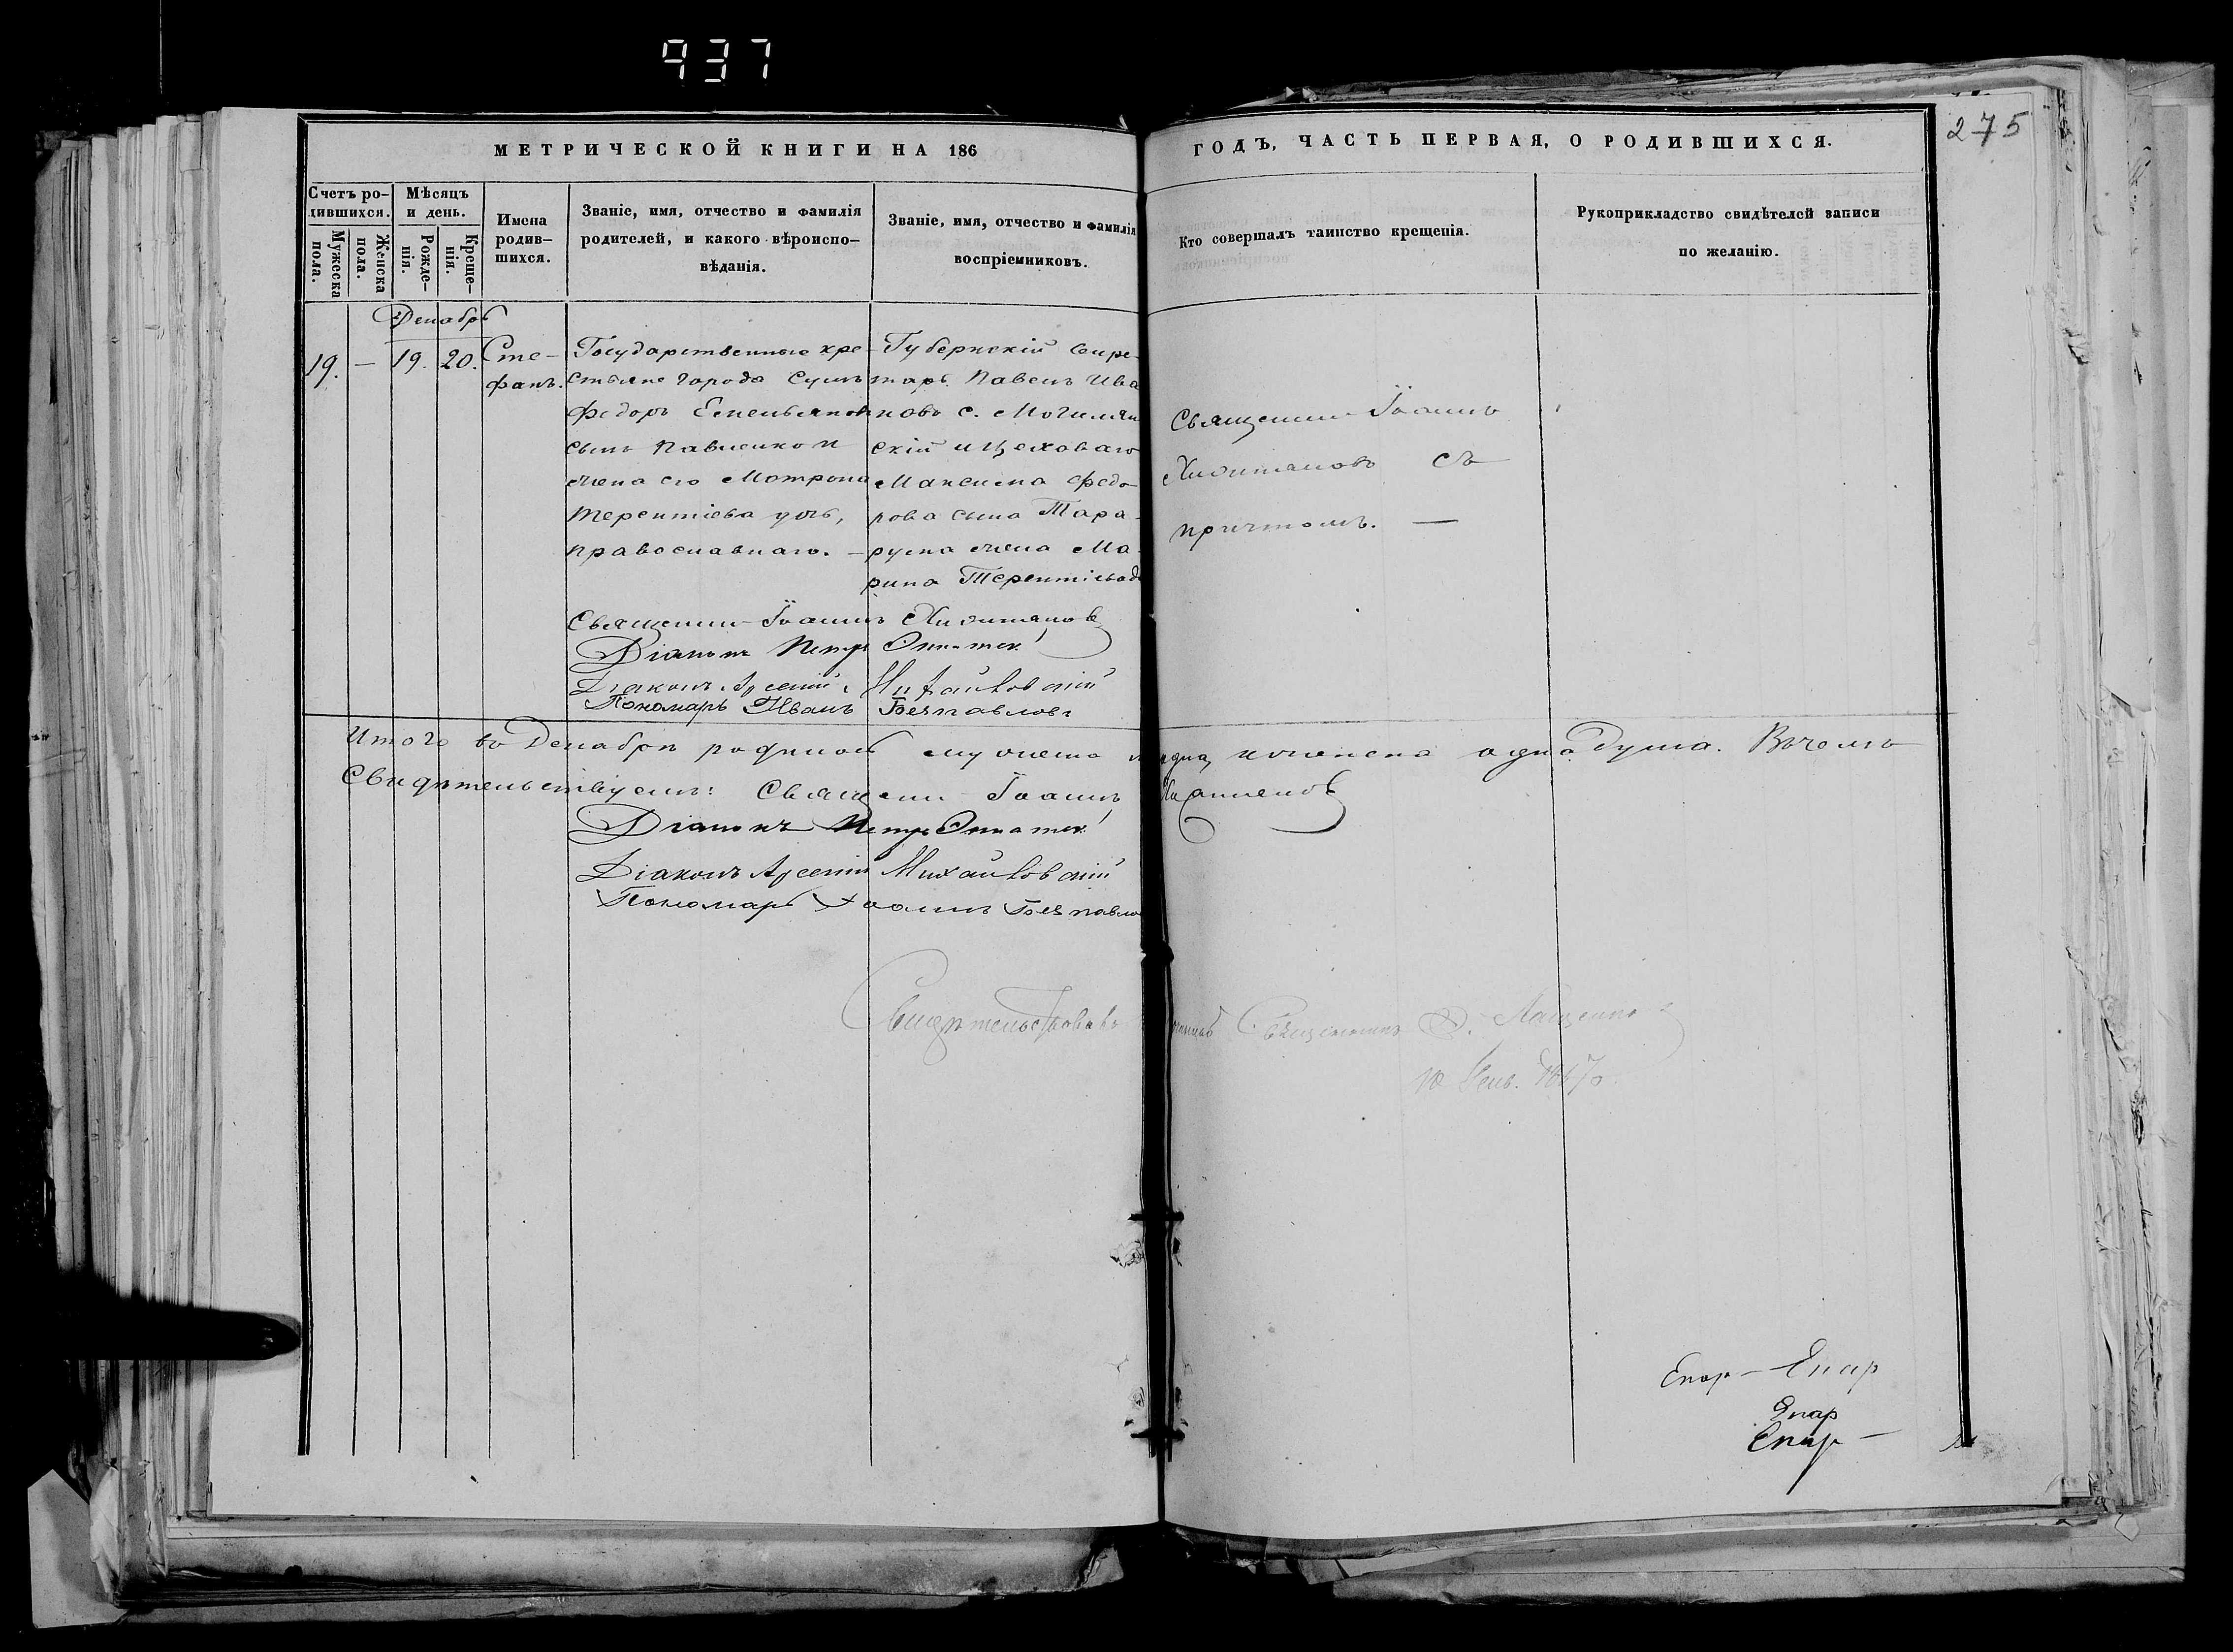 937
275
МЕТРИЧЕСКОЙ КНИГИ НА 186
ГОДЪ, ЧАСТЬ ПЕРВАЯ, О РОДИВШИХСЯ.
Счетъ ро-
дившихся.
Мужеска
пола.
Женска
пола.
Мѣсяцъ
и день.
Рожде-
нія.
Креще-
нія.
Имена
родив-
шихся.
Званіе, имя, отчество и фамилія
родителей, и какого вѣроиспо-
вѣданія.
Званіе, имя, отчество и фамилія
воспріемниковъ.
Кто совершалъ таинство крещенія.
Рукоприкладство свидѣтелей записи
по желанію.
Декабрь
19. — 19. 20.
Сте-
фанъ.
Государственные кре-
стьяне города Сумъ
Федоръ Емельяновъ
сынъ Павленко и
жена его Матрона
Терентіева дочь,
православнаго. —
Губернскій Секре-
тарь Павелъ Ива
новъ с. Могилян
скій и цеховаго
Максима Федо-
рова сына Тара-
руска жена Ма-
рина Терентіева д
Священни Іоаннъ
съ
причтомъ. —
Священни Іоаннъ
Діаконъ Петръ
Діаконъ Арсеній Михайловскій
Пономарь Иванъ Безпавловъ
Итого въ Декабрѣ родилось мужеска одна, и женска одна душа. Въ чемъ
Свидѣтельствуемъ: Священни Іоаннъ
Діаконъ Петръ
Діаконъ Арсеній Михайловскій
Пономарь Іоаннъ Безпавло
Свидѣтельствовалъ Священникъ
1867
Епар — Епар
Епар
Епар —